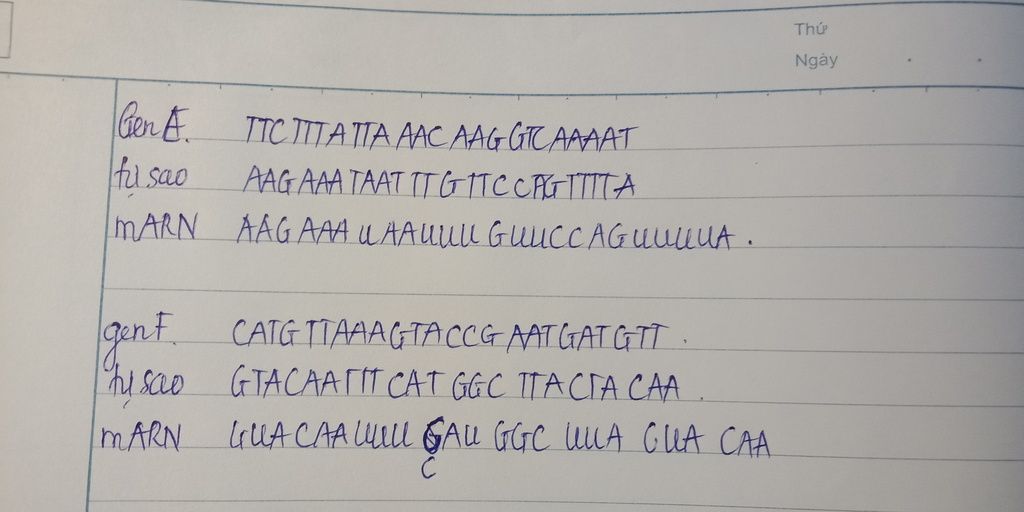 Thứ
Ngày
Gen E. TTC TTTATTA AAC AAG GTCAAAAT
tự sao AAGAAATAATTTGTTCCAGTTTTA
mARN AAGAAAUAAUUUGUUCCAGUUUUA.
gen F. CATGTTAAAGTACCGAATGATGTT.
tự sao GTACAATTTCATGGCTTACTACAA.
mARN GUACAAUUUGAU GGC UUA CUA CAA
C